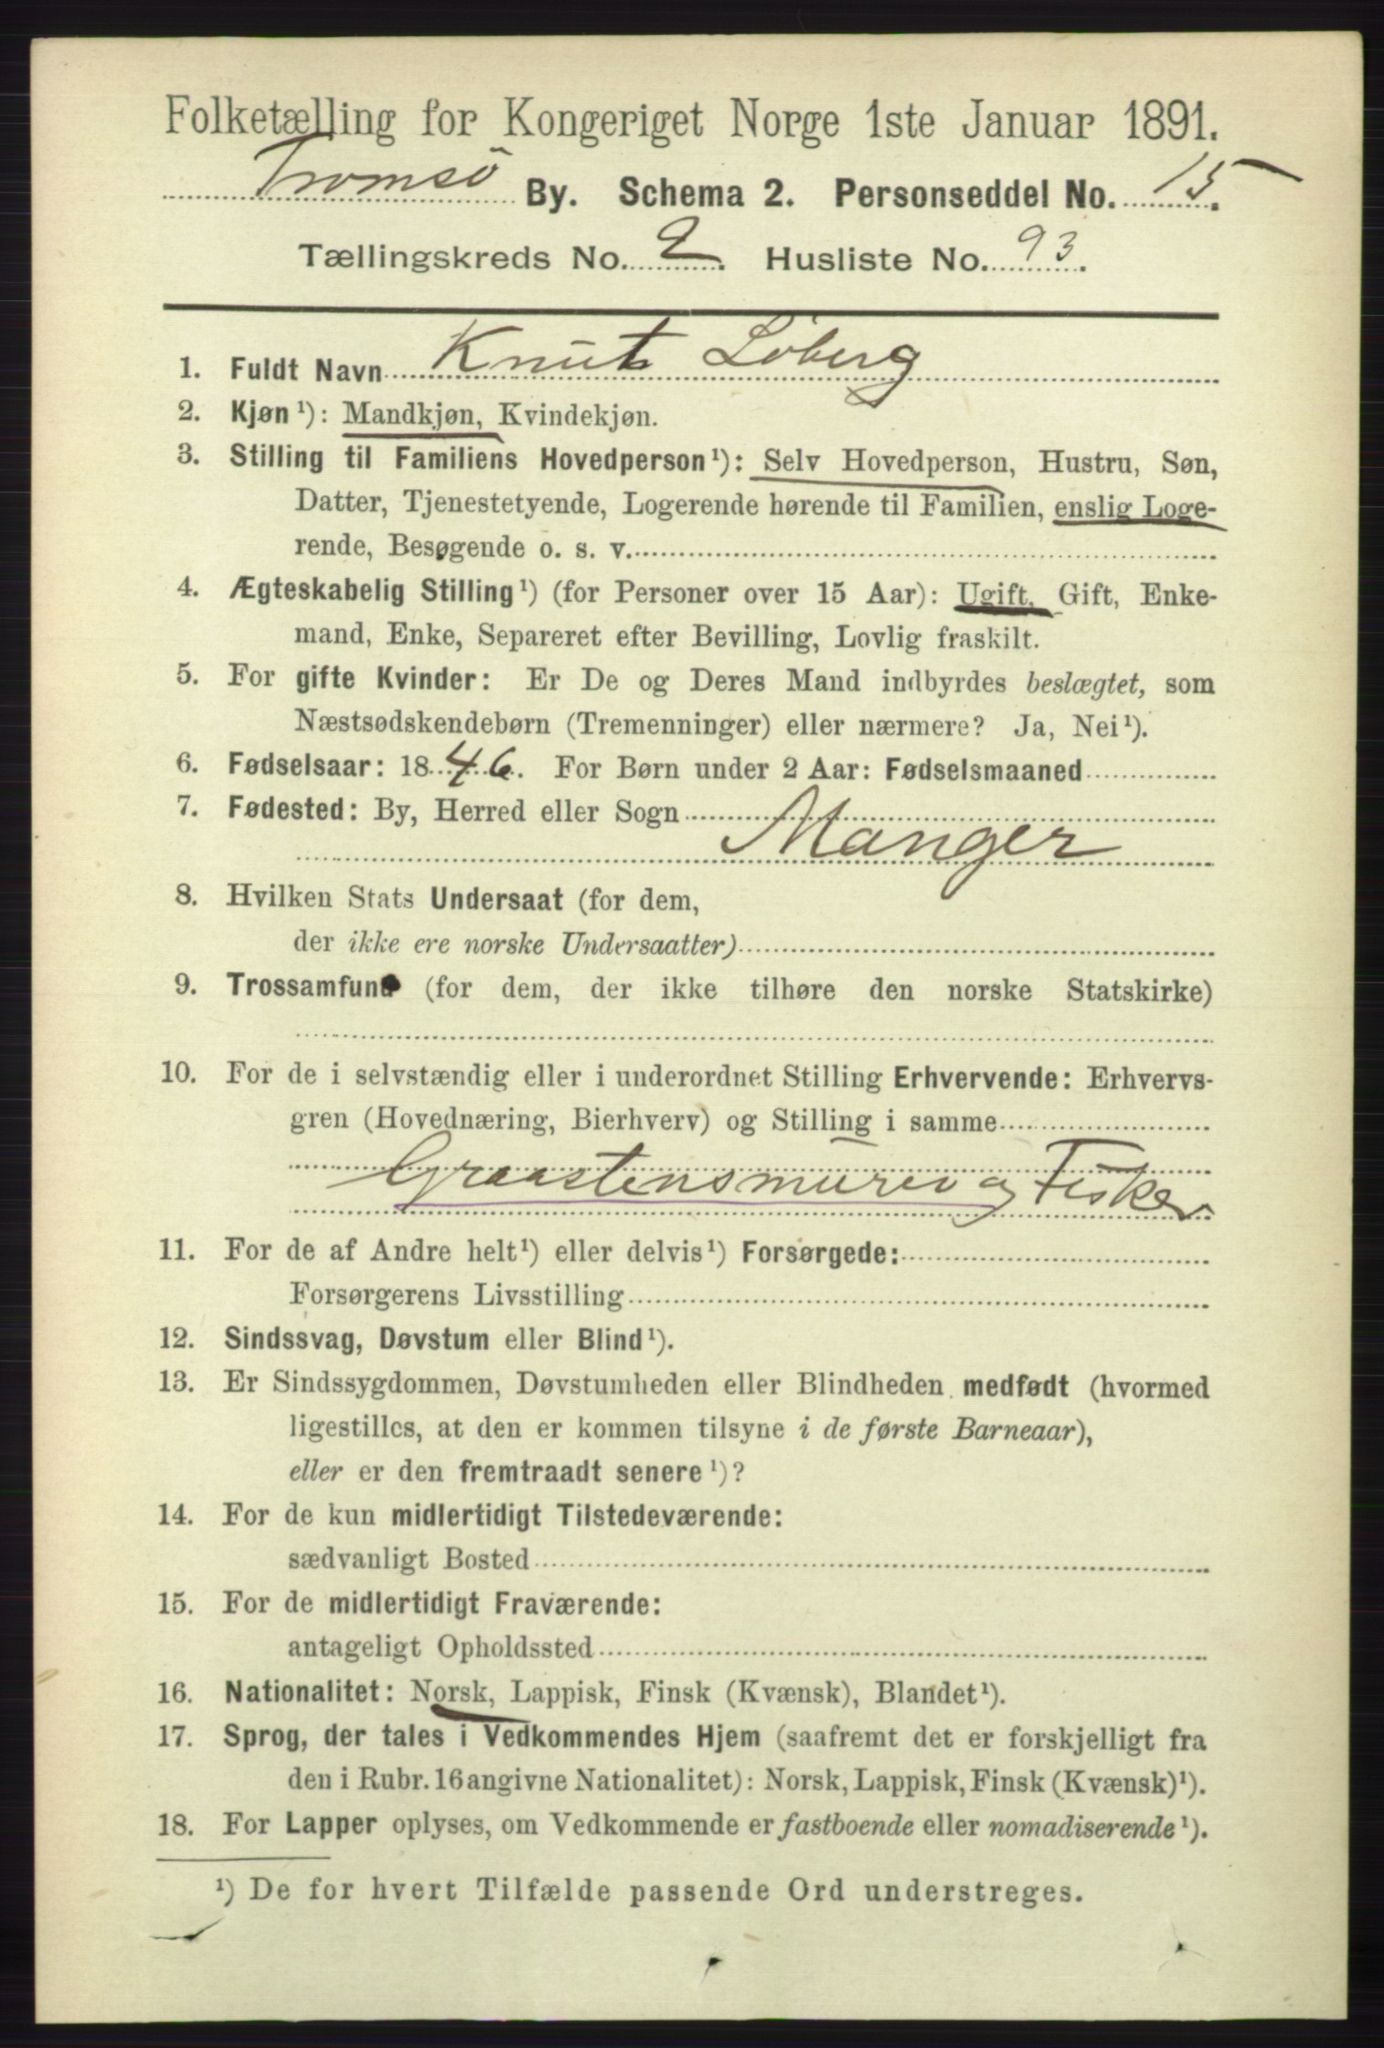 Folketælling for Kongeriget Norge 1ste Januar 1891.
Tromsö By. Schema 2. Personseddel No. 15.
Tællingskreds No. 2. Husliste No. 93.
1. Fuldt Navn Knut Löberg
2. Kjøn ¹): Mandkjøn, Kvindekjøn.
3. Stilling til Familiens Hovedperson¹): Selv Hovedperson, Hustru, Søn,
Datter, Tjenestetyende, Logerende hørende til Familien, enslig Loge-
rende, Besøgende o. s. v.
4. Ægteskabelig Stilling¹) (for Personer over 15 Aar): Ugift, Gift, Enke-
mand, Enke, Separeret efter Bevilling, Lovlig fraskilt.
5. For gifte Kvinder: Er De og Deres Mand indbyrdes beslægtet, som
Næstsødskendebørn (Tremenninger) eller nærmere? Ja, Nei¹).
6. Fødselsaar: 1846. For Børn under 2 Aar: Fødselsmaaned
7. Fødested: By, Herred eller Sogn
Manger
8. Hvilken Stats Undersaat (for dem,
der ikke ere norske Undersaatter)
9. Trossamfund (for dem, der ikke tilhøre den norske Statskirke)
10. For de i selvstændig eller i underordnet Stilling Erhvervende: Erhvervs-
gren (Hovednæring, Bierhverv) og Stilling i samme
Graastensmurer og Fisker
11. For de af Andre helt¹) eller delvis¹) Forsørgede:
Forsørgerens Livsstilling
12. Sindssvag, Døvstum eller Blind¹).
13. Er Sindssygdommen, Døvstumheden eller Blindheden medfødt (hvormed
ligestilles, at den er kommen tilsyne i de første Barneaar),
eller er den fremtraadt senere ¹)?
14. For de kun midlertidigt Tilstedeværende:
sædvanligt Bosted
15. For de midlertidigt Fraværende:
antageligt Opholdssted
16. Nationalitet: Norsk, Lappisk, Finsk (Kvænsk), Blandet¹).
17. Sprog, der tales i Vedkommendes Hjem (saafremt det er forskjelligt fra
den i Rubr. 16 angivne Nationalitet): Norsk, Lappisk, Finsk (Kvænsk)¹).
18. For Lapper oplyses, om Vedkommende er fastboende eller nomadiserende¹).
¹) De for hvert Tilfælde passende Ord understreges.